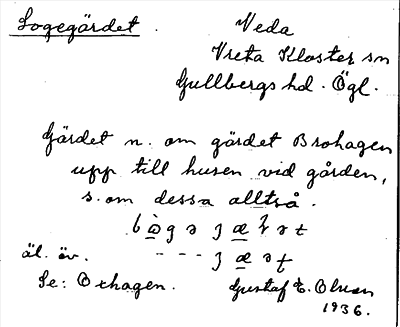 Logegärdet.
Veda
Vreta Kloster sn
Gullbergs hd. Ögl.
Gärdet n. om gärdet Brohagen
upp till husen vid gården,
s. om dessa alltså.
äl. äv.
Se: Oxhagen. Gustaf E. Olsson
1936.